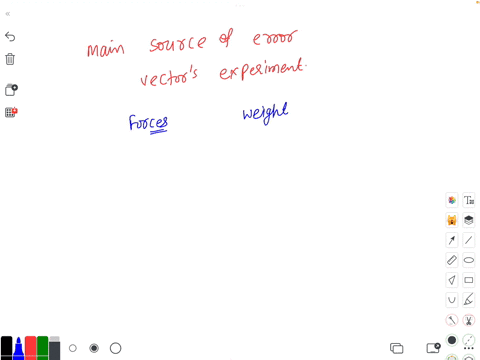 main source of error
vector's experiment.
Forces weight